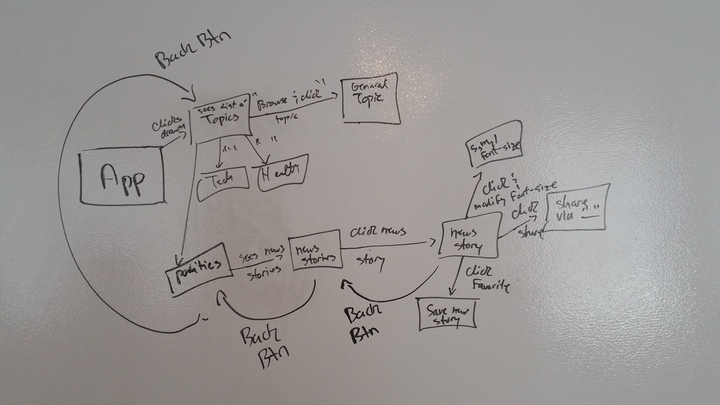 Back Btn
App
clicks
drawer
sees List of
Topics
Browse & click
topic
General
Topic
Tech
Health
politics
sees news
stories
news
stories
click news
story
news
story
click &
modify font-size
s, m, l
font-size
click
share
share
via " "
click
Favorite
Save news
story
Back
Btn
Back
Btn